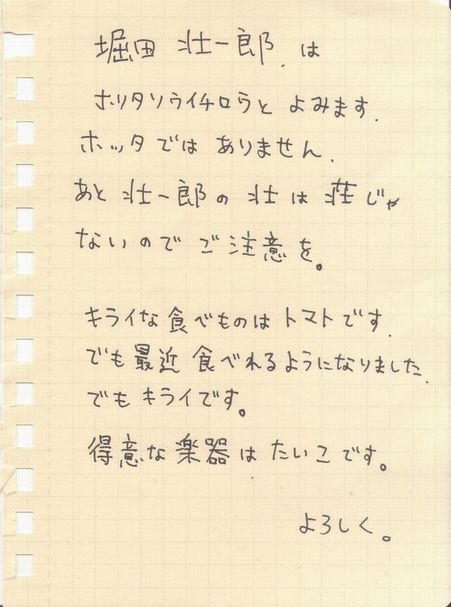 堀田 壮一郎.は
ホリタソウイチロウと よみます.
ホッタでは ありません.
あと 壮一郎の 壮は 荘じゃ
ないので ご注意を。
キライな食べものは トマトです.
でも最近 食べれるようになりました.
でも キライです。
得意な楽器は たいこです。
よろしく。